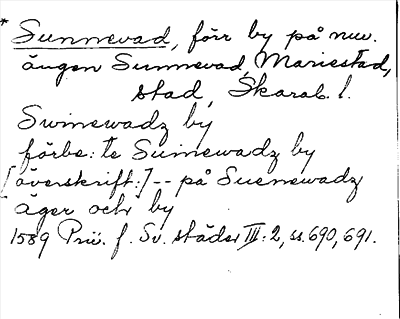 * Sunnevad, förr by på nuv.
ängen Sunnevad, Mariestad,
stad, Skarab. l.
Swinewadz by
förbe: te Suinewadz by
[överskrift:] -- på Suenewadz
äger och by
1589 Priv. f. Sv. städer III: 2, ss. 690, 691.